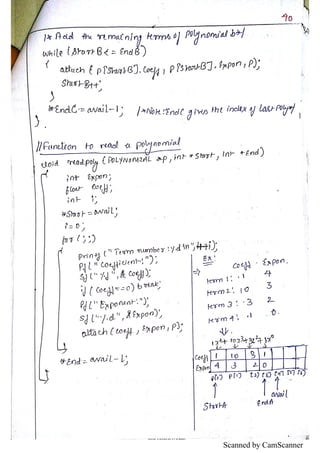 90
/* Add the remaining terms of polynomial b */
while (StartB <= EndB)
{
attach ( p[StartB].Coeff, p[StartB].Expon, p);
StartB++;
}
*EndC = avail-1; /* Note: EndC gives the index of last Poly */
//Function to read a polynomial
void readpoly (POLYNOMIAL *p, int *Start, int *End)
{
int Expon;
float Coeff;
int i;
*Start = avail;
i=0;
for (;;)
{
printf ("Term number:%d\n", ++i);
Pf ("Coefficient:");
Sf ("%f", & Coeff);
if (Coeff==0) break;
Pf ("Exponent:");
Sf ("%d", &Expon);
attach (coeff, Expon, p);
}
*End = avail-1;
}
Ex:
Coeff. Expon.
term 1: 1 4
term 2: 10 3
term 3: 3 2
term 4: 1 0.
1x⁴+10x³+3x²+1x⁰
Coeff 1 10 3 1
Expon 4 3 2 0
p[0] p[1] [2] [3] [4] [5] [6]
StartA EndA avail
Scanned by CamScanner